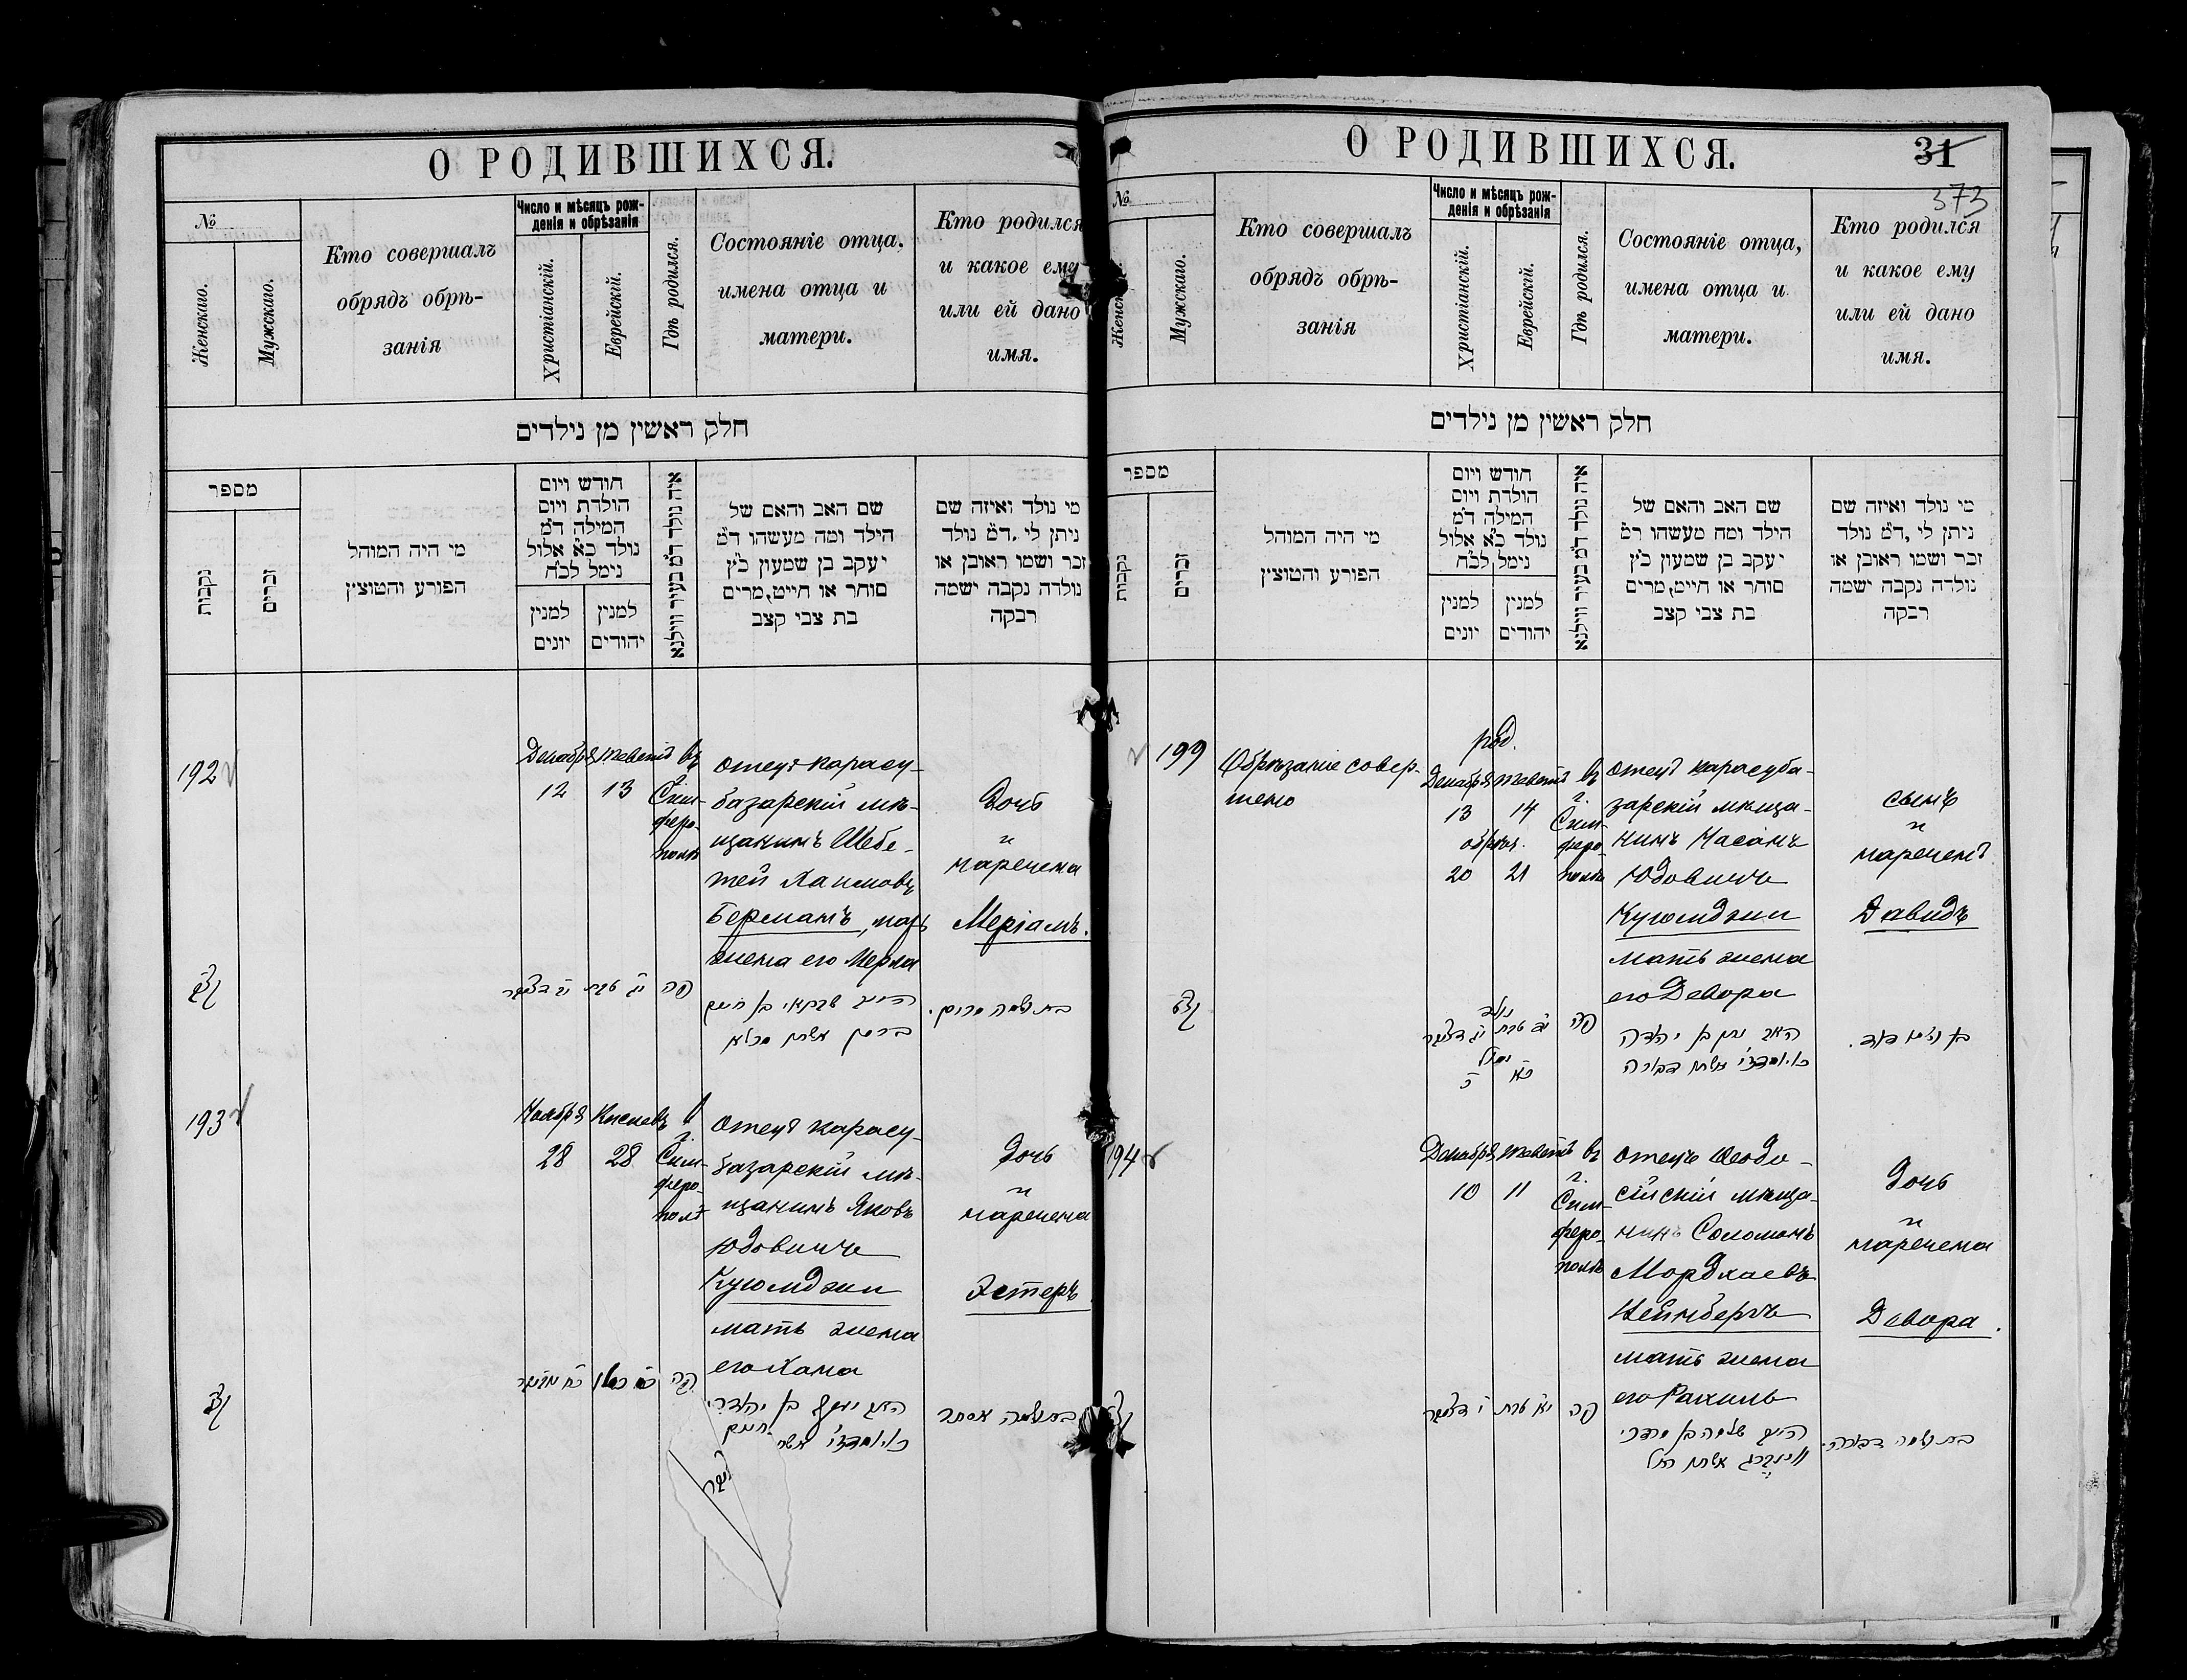 О РОДИВШИХСЯ.
№
Женскаго.
Мужскаго.
Кто совершалъ
обрядъ обрѣ-
занія
Число и мѣсяцъ рож-
денія и обрѣзанія
Христіанскій.
Еврейскій.
Гдѣ родился.
Состояніе отца,
имена отца и
матери.
Кто родился
и какое ему
или ей дано
имя.
חלק ראשין מן נילדים
מספר
נקבות
זכרים
מי היה המוהל
הפורע והטוצץ
חודש ויום
הולדת ויום
המילה ד״מ
נולד כ״א אלול
נימל לכ״ח
למנין
יונים
למנין
יהודים
איה נולד ד״מ בעיר ווילנא
שם האב והאם של
הילד ומה מעשהו ד״מ
יעקב בן שמעון כ״ץ
סוחר או חייט, מרים
בת צבי קצב
מי נולד ואיזה שם
ניתן לי, ד״מ נולד
זכר ושמו ראובן או
נולדה נקבה ישמה
רבקה
192
Декабря
12
Теветъ
13
въ
г.
Сим-
феро-
полѣ
Отецъ карасу-
базарскій мѣ-
щанинъ Шебе-
тей Хаимовъ
Берманъ, мать
жена его Мерка
Дочь
и
наречена
Меріамъ.
פה
ברמן אשתו
193
Ноября
28
Кислевъ
28
в
г.
Сим-
феро-
полѣ
Отецъ карасу-
базарскій мѣ-
щанинъ Яковъ
Юдовичъ
Куюмджи
мать жена
его Хана
Дочь
и
наречена
Эстеръ
פה
בת ושמה אסתר
О РОДИВШИХСЯ.
31
373
№
Женск
Мужскаго.
Кто совершалъ
обрядъ обрѣ-
занія
Число и мѣсяцъ рож-
денія и обрѣзанія
Христіанскій.
Еврейскй.
Гдѣ родился.
Состояніе отца,
имена отца и
матери.
Кто родился
и какое ему
или ей дано
имя.
חלק ראשין מן נילדים
מספר
נקבות
זכרים
מי היה המוהל
הפורע והטוצץ
חודש ויום
הולדת ויום
המילה ד״מ
נולד כ״א אלול
נימל לכ״ח
למנין
יונים
למנין
יהודים
איה נולד ד״מ בעיר ווילנא
שם האב והאם של
הילד ומה מעשהו ר״מ
יעקב בן שמעון כ״ץ
סוחר או חייט, מרים
בת צבי קצב
מי נולד ואיזה שם
ניתן לי, ד״מ נולד
זכר ושמו ראובן או
נולדה נקבה ישמה
רבקה
199
Обрѣзаніе совер-
шено
род.
Декабря
13
Теветъ
14
обрѣз.
20
21
въ
г.
Сим-
феро-
полѣ
Отецъ карасуба-
зарскій мѣща-
нинъ Насанъ
Юдовичъ
Куюмджи
мать жена
его Девора
сынъ
и
нареченъ
Давидъ
נולד
נימול
פה
האב נתן בן יהודה
אשתו דבורה
בן ושמו דוד.
194
Декабря
10
Теветъ
11
въ
г.
Сим-
феро-
полѣ
Отецъ Ѳеодо-
сійскій мѣща-
нинъ Соломонъ
Мордхаевъ
Вейнбергъ
мать жена
его Рахиль
Дочь
и
наречена
Девора.
פה
שלמה בן מרדכי
אשתו רחל
בת ושמה דבורה.